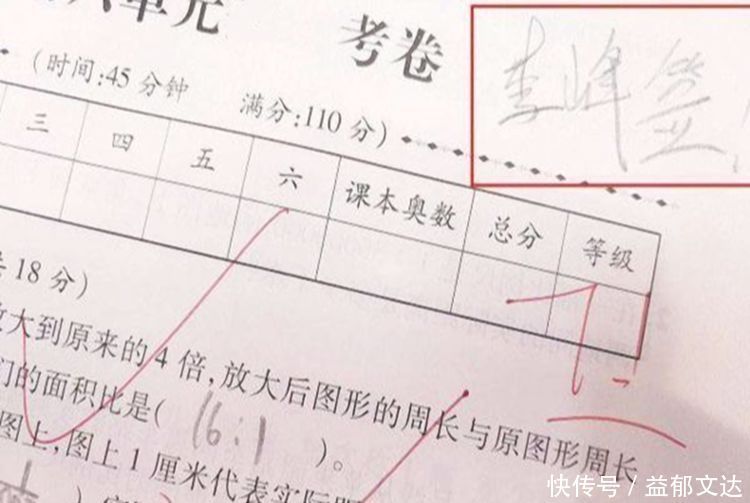 六单元 考卷
李峰签
(时间:45分钟 满分:110分)
三 四 五 六 课本奥数 总分 等级
18分)
大到原来的4倍,放大后图形的周长与原图形周长
们的面积比是( 16:1 )。
图上,图上1厘米代表实际距
快传号 / 益郁文达